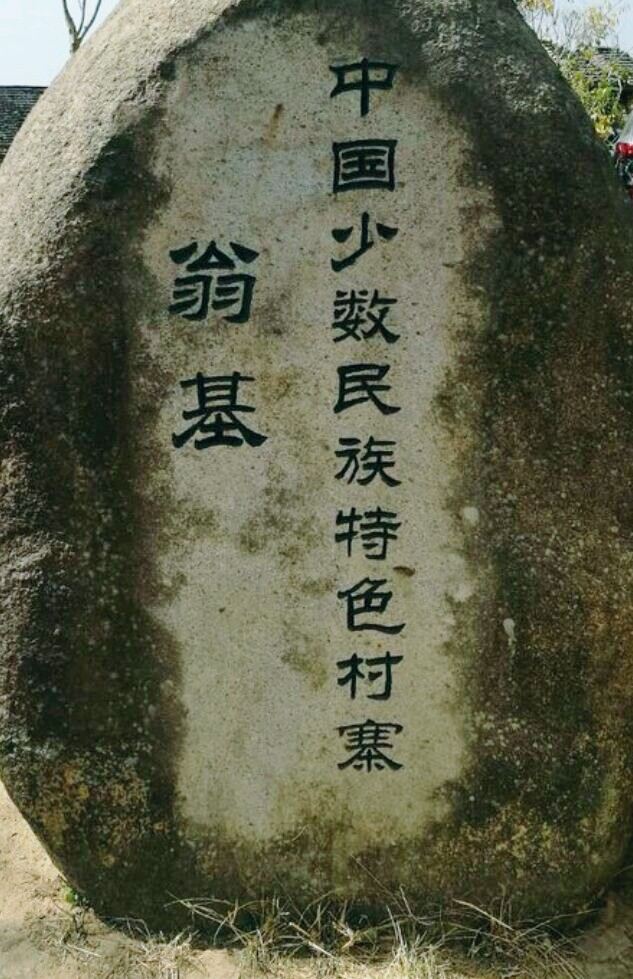 中国少数民族特色村寨
翁基